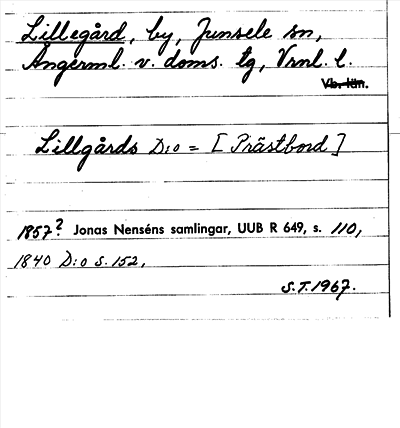 Lillegård, by, Junsele sn,
Ångerml. v. doms. tg, Vrnl. l.
Vb. län.
Lillgårds D:o = [Prästbord]
1857? Jonas Nenséns samlingar, UUB R 649, s. 110,
1840 D:o s. 152,
S.T. 1967.